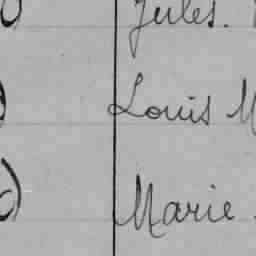 Jules.
Louis M
Marie